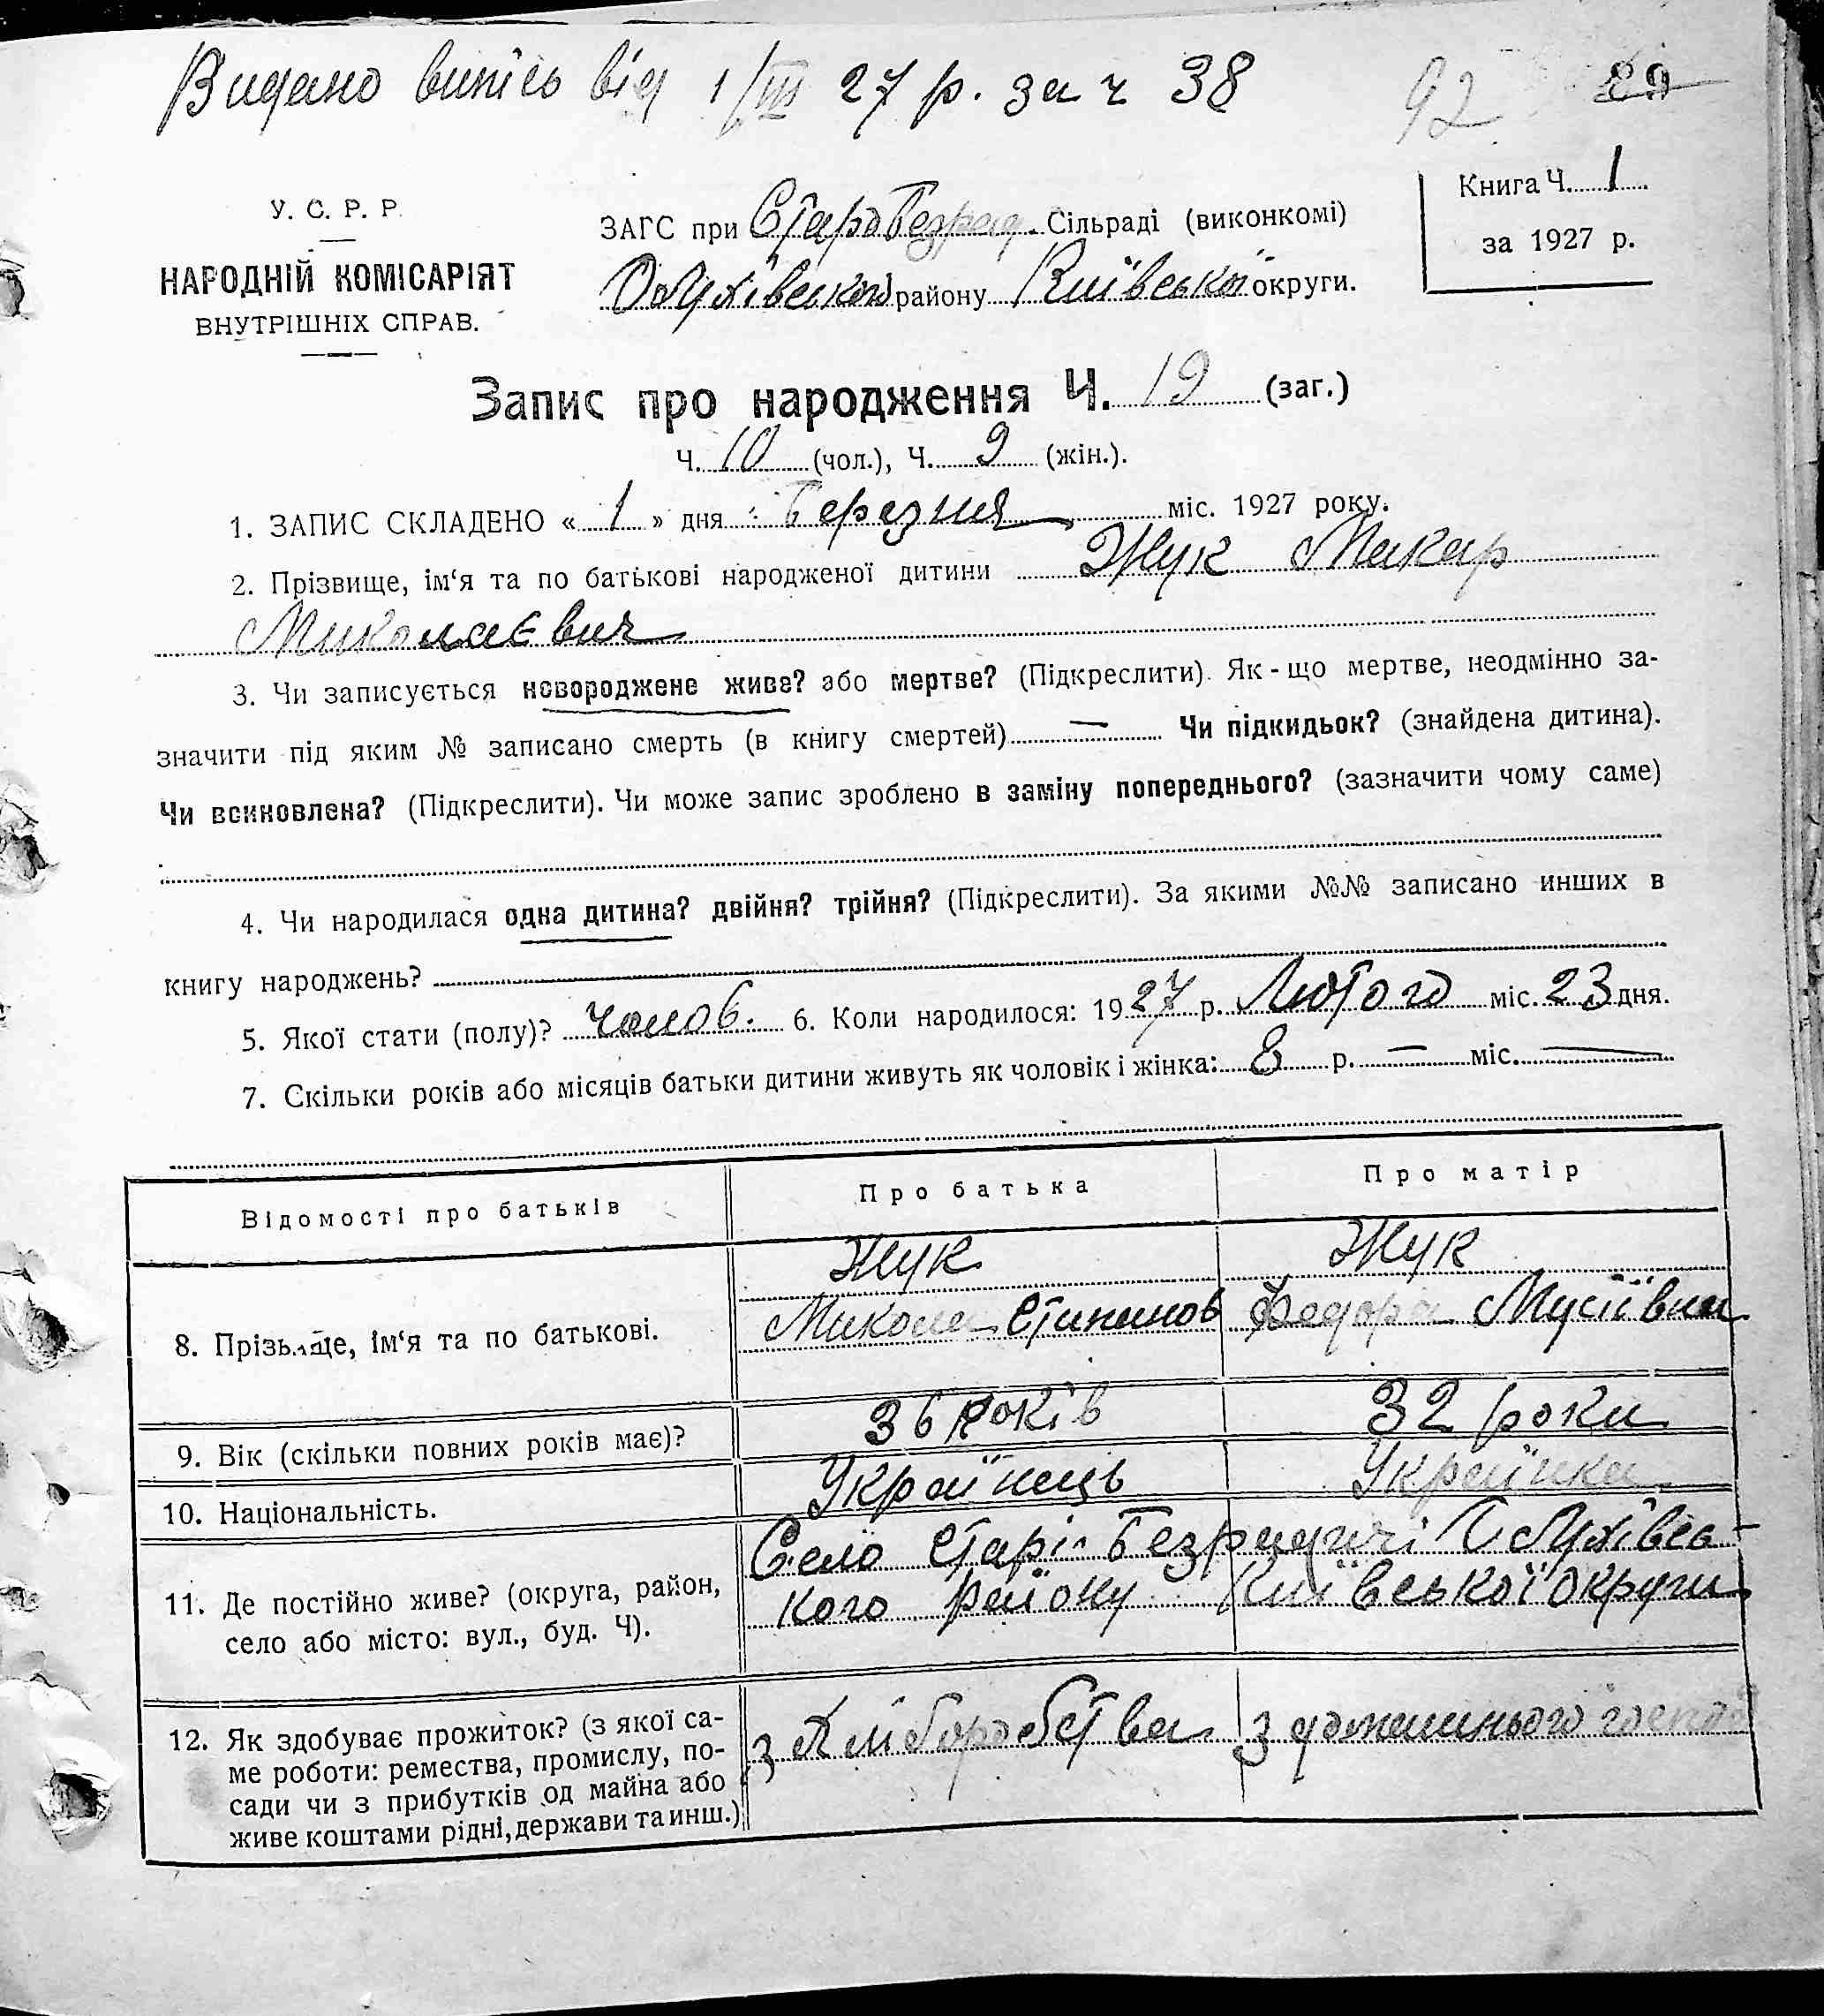 Видано випісь від 1/III 27 р. за ч 38 92 89
Книга Ч. 1
за 1927 р.
У. С. Р. Р.
НАРОДНІЙ КОМІСАРІЯТ
ВНУТРІШНІХ СПРАВ.
ЗАГС при Старобезрад. Сільраді (виконкомі)
Обухівського району Київської округи.
Запис про народження Ч. 19 (заг.)
Ч. 10 (чол.), Ч. 9 (жін.).
1. ЗАПИС СКЛАДЕНО « 1 » дня Березня міс. 1927 року.
2. Прізвище, ім‘я та по батькові народженої дитини Жук Макар
Миколаєвич
3. Чи записується новороджене живе? або мертве? (Підкреслити). Як-що мертве, неодмінно за-
значити під яким № записано смерть (в книгу смертей) — Чи підкидьок? (знайдена дитина).
Чи всиновлена? (Підкреслити). Чи може запис зроблено в заміну попереднього? (зазначити чому саме)
4. Чи народилася одна дитина? двійня? трійня? (Підкреслити). За якими №№ записано инших в
книгу народжень?
5. Якої стати (полу)? чолов. 6. Коли народилося: 1927 р. Лютого міс. 23 дня.
7. Скільки років або місяців батьки дитини живуть як чоловік і жінка: 8 р. — міс. —
Відомості про батьків Про батька Про матір
8. Прізвище, ім‘я та по батькові. Жук Жук
Микола Стипанов Федора Мусіївна
9. Вік (скільки повних років має)? 36 років 32 роки
10. Національність. Українець Українка
11. Де постійно живе? (округа, район, село або місто: вул., буд. Ч). Село Старі Безрадичі Обухівсь-
кого району Київської округи
12. Як здобуває прожиток? (з якої са-
ме роботи: ремества, промислу, по-
сади чи з прибутків од майна або
живе коштами рідні, держави та инш.) з хліборобства з домашнього господ